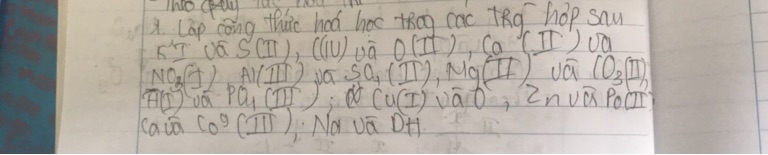 1. Lập công thức hoá học trog các trg hợp sau
K(I) và S(II), C(IV) và O(II), Ca (II) và
NO3(I) Al(III) và SO4(II), Mg(II) và CO3(II)
H(I) và PO4(III), Cu(I) và O, Zn và PO(II)
Ca và CO9(III), Na và OH